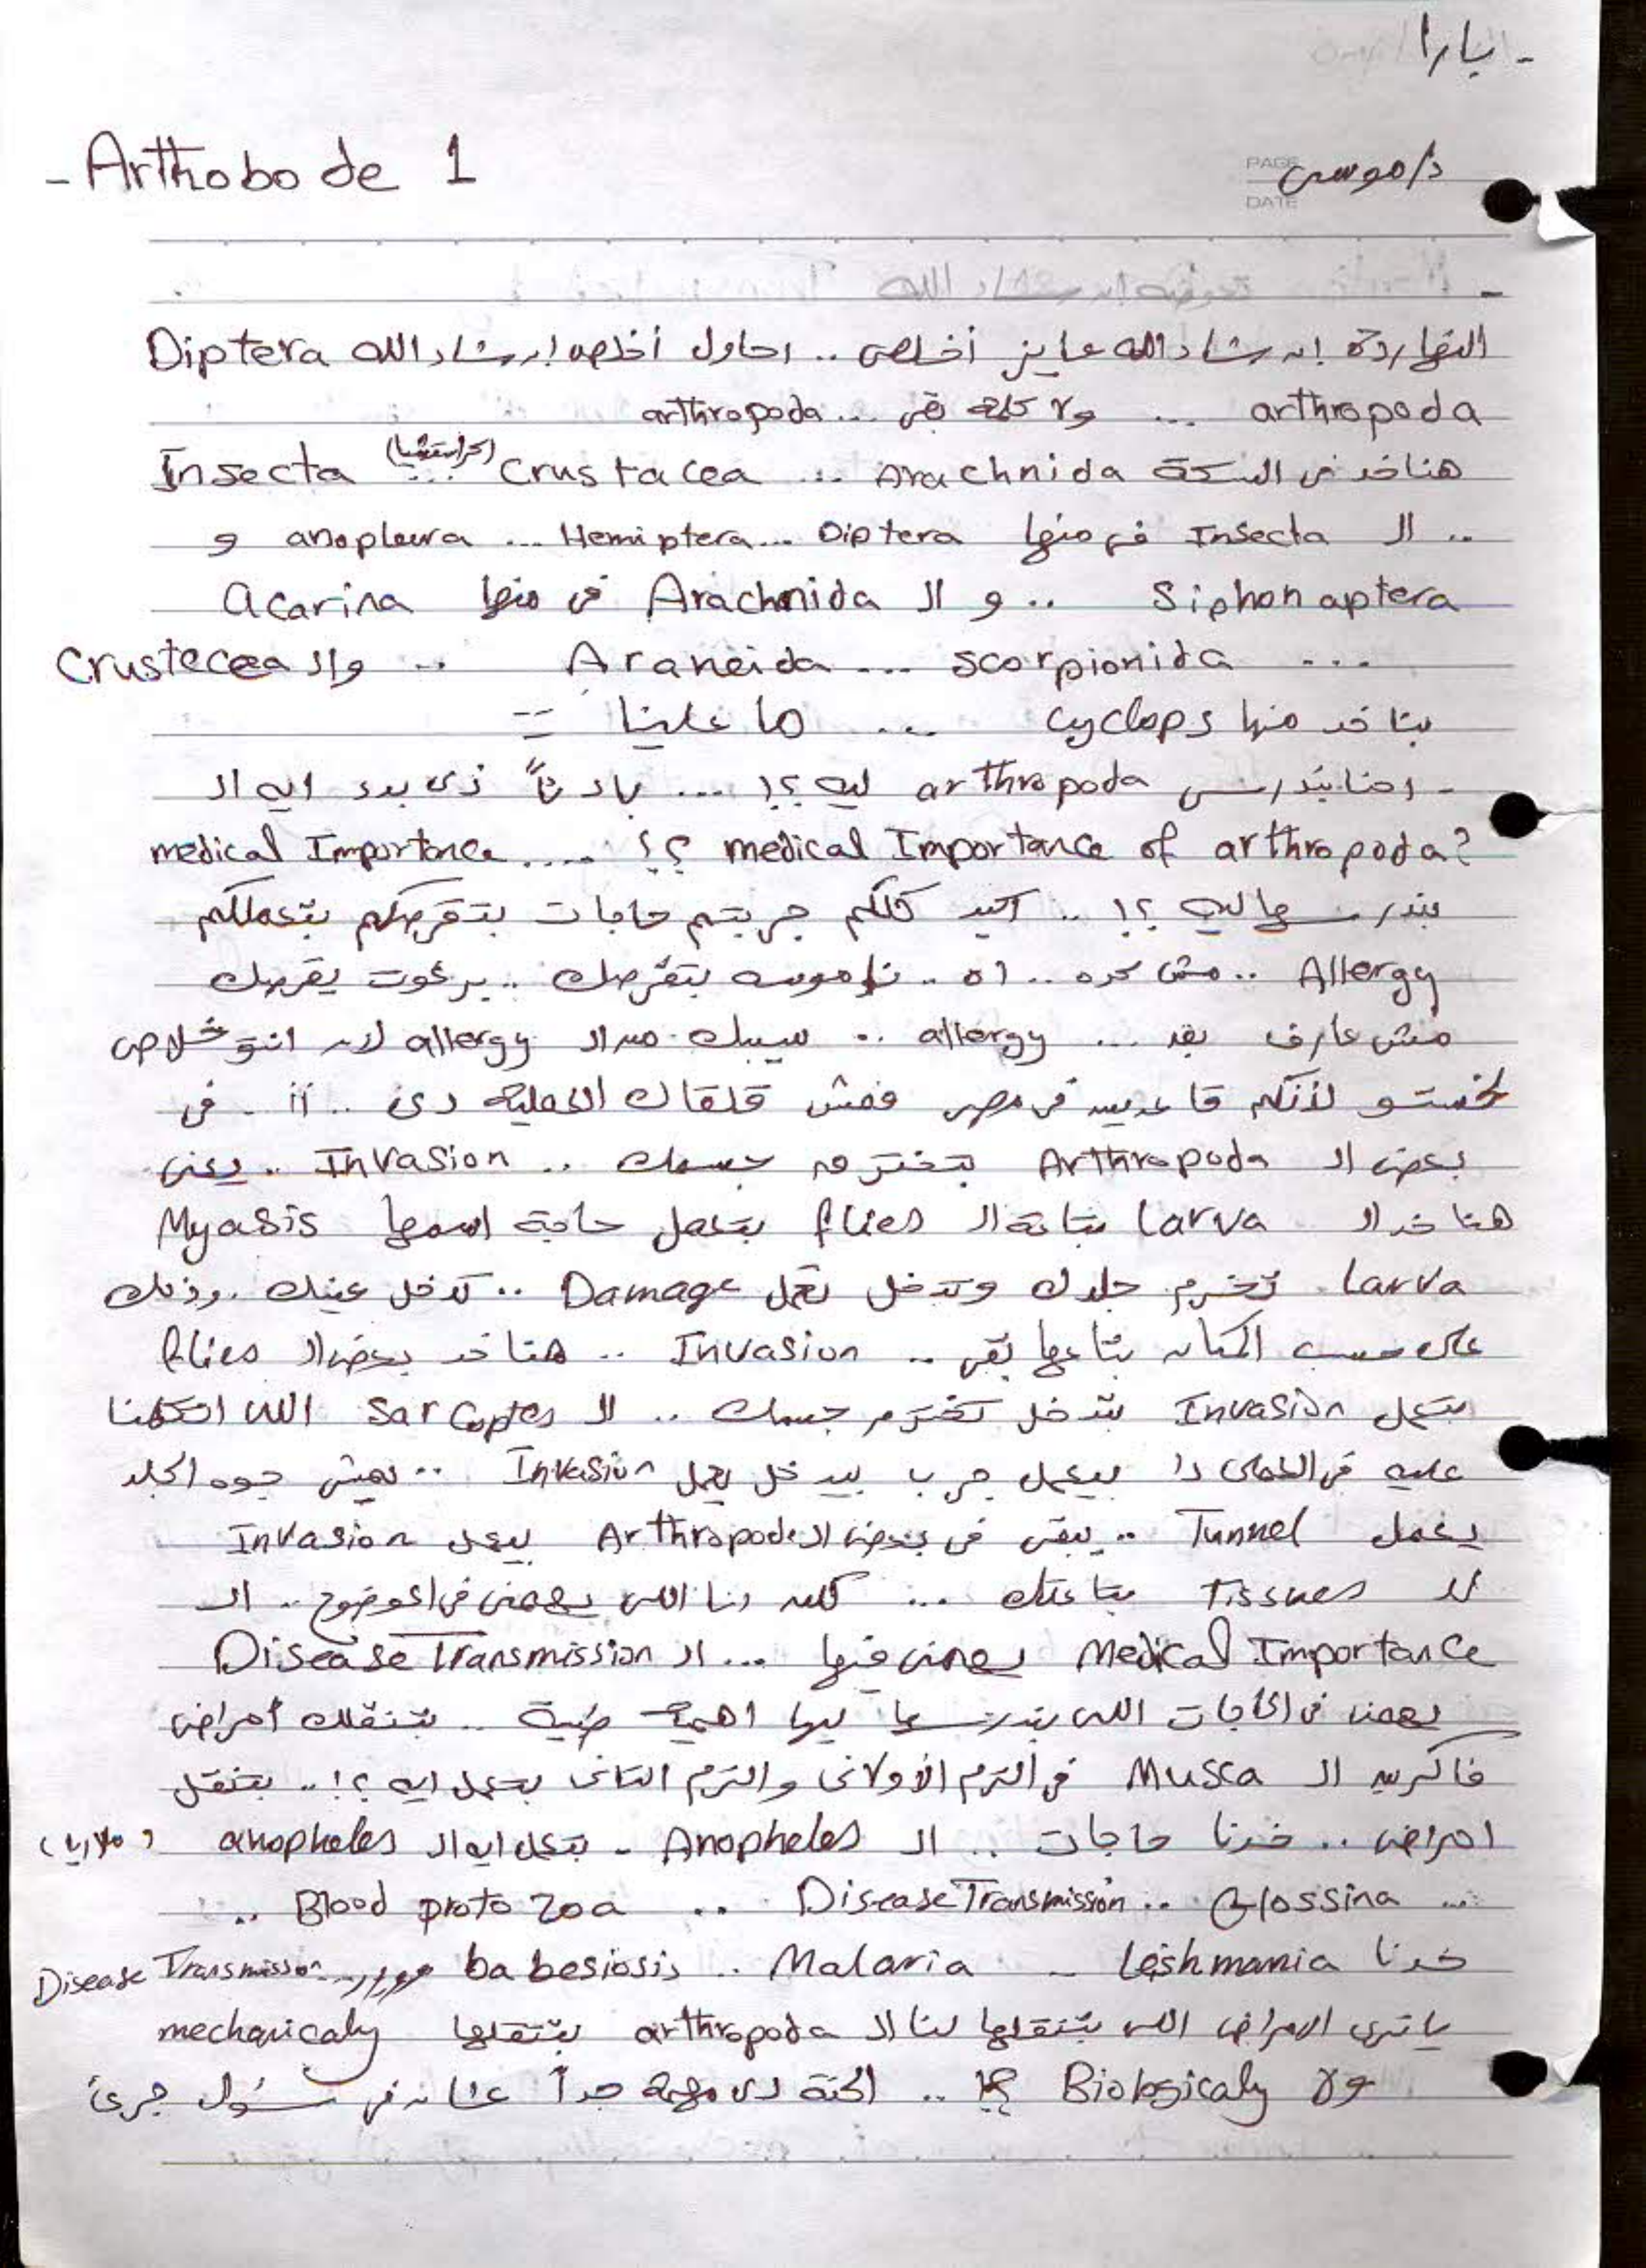 - بارا
- Arthobode 1
د/موسى
PAGE
DATE
النهاردة إن شاء الله عايز أخلص .. احاول أخلص إن شاء الله Diptera
arthropoda ... ولا كلمة بقى ... arthropoda
هناخد في السكة Arachnida ... Crustacea (كراستشيا) ... Insecta
.. الـ Insecta في منها Diptera ... Hemiptera ... anopleura و
Siphonaptera .. و الـ Arachnida في منها acarina
... scorpionida ... Araneida .. والـ Crustecea
بناخد منها cyclops ... ما علينا --
- احنا بندرس arthropoda ليه ؟! ... بادئاً ذى بدء ايه الـ
medical Importance of arthropoda? ؟؟ .... medical Importance
بندرسها ليه ؟! .. اكيد كلكم جربتم حاجات بتقرصكم بتعملكم
Allergy .. مش كده .. اه .. ناموسه بتقرصك .. برغوت يقرصك
مش عارف بقه ... allergy .. سيبك من الـ allergy لان انتو خلاص
لأنكم قاعدين في مصر فمش العملية دى .. في
بعض الـ Arthropoda بتخترق جسمك .. Invasion .. يعنى
هناخد الـ larva بتاعة الـ flies بتعمل حاجة اسمها Myasis
larva تخرم جلدك وتدخل تعمل Damage .. تدخل عينك .. وذلك
على حسب المكان بتاعها بقى .. Invasion .. هناخد بعض الـ flies
بتعمل Invasion بتدخل تخترم جسمك .. الـ Sarcoptes اللى اتكلمنا
عليه في العملى دا بيعمل جرب بيدخل يعمل Invasion .. يعيش جوه الجلد
يعمل Tunnel .. يبقى في بعض الـ Arthropode بيعمل Invasion
للـ Tissues بتاعتك ... لكن انا اللى يهمنى في الموضوع .. الـ
Medical Importance يهمنى فيها ... الـ Disease Transmission
يهمنى في الحاجات اللى بندرسها ليها اهمية طبية .. بتنقلك أمراض
فاكرين الـ Musca في الترم الأولانى والترم التانى بتعمل ايه ؟! .. بتنقل
امراض .. خدنا حاجات .. الـ Anopheles - بتعمل ايه الـ anopheles (ملاريا)
... Glossina .. Disease Transmission .. Blood protozoa ..
خدنا Leishmania - Malaria .. babesiosis Disease Transmission
ياترى الامراض اللى بتنقلها لنا الـ arthropoda بتنقلها mechanicaly
ولا Biologicaly ؟! .. الحتة دى مهمة جداً عشان في سئول جرئ